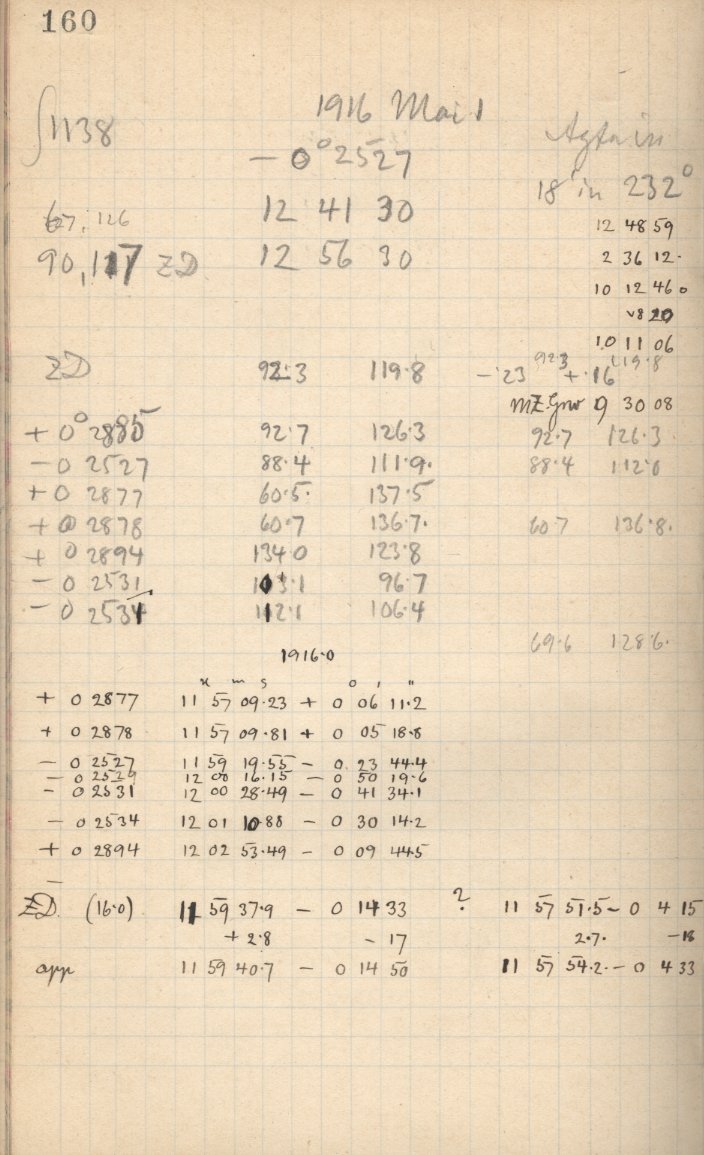 160
1916 Mai 1
1138
− 0° 2527
18 in 232°
67, 126
12 41 30
12 48 59
90,117 ZD
12 56 30
2 36 12.
10 12 46 0
10 11 06
92.3 119.8
ZD 92.3 119.8 − .23 + .16
MZ. Grw 9 30 08
+ 0° 2885 92.7 126.3 92.7 126.3
− 0 2527 88.4 111.9. 88.4 112.0
+ 0 2877 60.5. 137.5
+ 0 2878 60.7 136.7. 60.7 136.8.
+ 0 2894 134.0 123.8
− 0 2531 103.1 96.7
− 0 2534 112.1 106.4
69.6 128.6.
1916.0
h m s o ' "
+ 0 2877 11 57 09.23 + 0 06 11.2
+ 0 2878 11 57 09.81 + 0 05 18.8
− 0 2527 11 59 19.55 − 0 23 44.4
− 0 2529 12 00 16.15 − 0 50 19.6
− 0 2531 12 00 28.49 − 0 41 34.1
− 0 2534 12 01 10.88 − 0 30 14.2
+ 0 2894 12 02 53.49 − 0 09 44.5
ZD. (16.0) 11 59 37.9 − 0 14 33 ? 11 57 51.5 − 0 4 15
+ 2.8 − 17 2.7. − 18
app 11 59 40.7 − 0 14 50 11 57 54.2. − 0 4 33